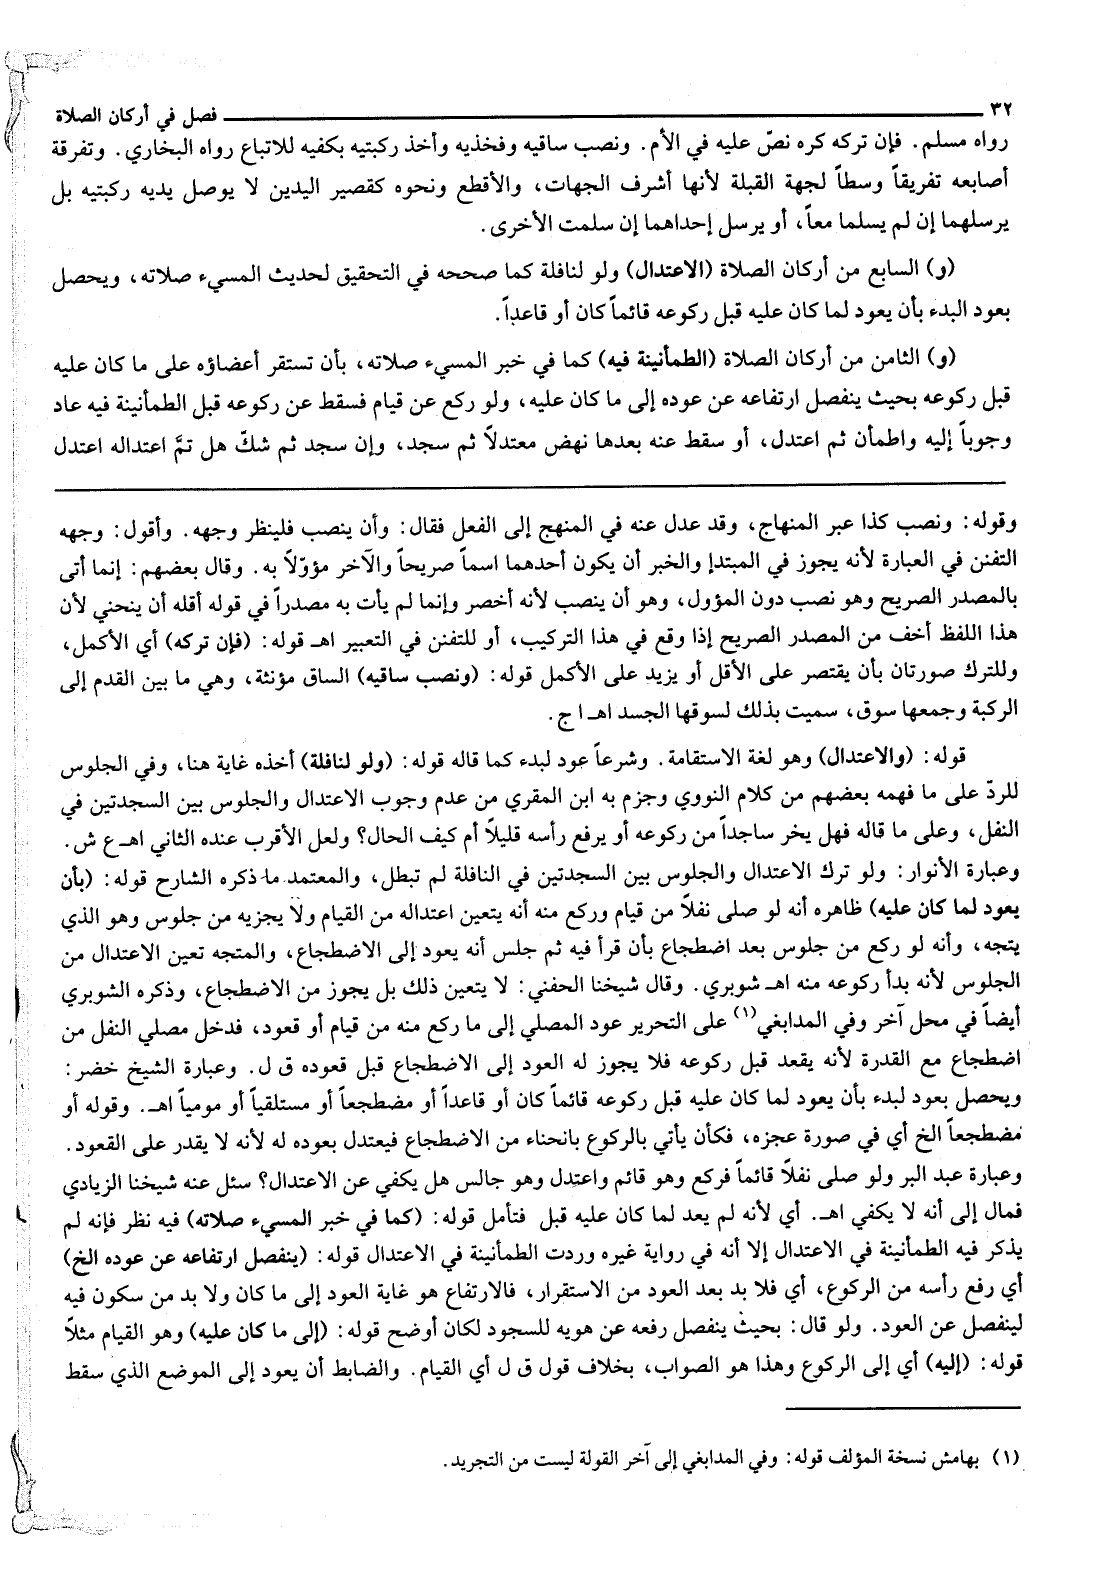 ٣٢ فصل في أركان الصلاة
رواه مسلم. فإن تركه كره نصّ عليه في الأم. ونصب ساقيه وفخذيه وأخذ ركبتيه بكفيه للاتباع رواه البخاري. وتفرقة
أصابعه تفريقاً وسطاً لجهة القبلة لأنها أشرف الجهات، والأقطع ونحوه كقصير اليدين لا يوصل يديه ركبتيه بل
يرسلهما إن لم يسلما معاً، أو يرسل إحداهما إن سلمت الأخرى.
(و) السابع من أركان الصلاة (الاعتدال) ولو لنافلة كما صححه في التحقيق لحديث المسيء صلاته، ويحصل
بعود البدء بأن يعود لما كان عليه قبل ركوعه قائماً كان أو قاعداً.
(و) الثامن من أركان الصلاة (الطمأنينة فيه) كما في خبر المسيء صلاته، بأن تستقر أعضاؤه على ما كان عليه
قبل ركوعه بحيث ينفصل ارتفاعه عن عوده إلى ما كان عليه، ولو ركع عن قيام فسقط عن ركوعه قبل الطمأنينة فيه عاد
وجوباً إليه واطمأن ثم اعتدل، أو سقط عنه بعدها نهض معتدلاً ثم سجد، وإن سجد ثم شكّ هل تمَّ اعتداله اعتدل
وقوله: ونصب كذا عبر المنهاج، وقد عدل عنه في المنهج إلى الفعل فقال: وأن ينصب فلينظر وجهه. وأقول: وجهه
التفنن في العبارة لأنه يجوز في المبتدإ والخبر أن يكون أحدهما اسماً صريحاً والآخر مؤوّلاً به. وقال بعضهم: إنما أتى
بالمصدر الصريح وهو نصب دون المؤول، وهو أن ينصب لأنه أخصر وإنما لم يأت به مصدراً في قوله أقله أن ينحني لأن
هذا اللفظ أخف من المصدر الصريح إذا وقع في هذا التركيب، أو للتفنن في التعبير اهـ قوله: (فإن تركه) أي الأكمل،
وللترك صورتان بأن يقتصر على الأقل أو يزيد على الأكمل قوله: (ونصب ساقيه) الساق مؤنثة، وهي ما بين القدم إلى
الركبة وجمعها سوق، سميت بذلك لسوقها الجسد اهـ ا ج.
قوله: (والاعتدال) وهو لغة الاستقامة. وشرعاً عود لبدء كما قاله قوله: (ولو لنافلة) أخذه غاية هنا، وفي الجلوس
للردّ على ما فهمه بعضهم من كلام النووي وجزم به ابن المقري من عدم وجوب الاعتدال والجلوس بين السجدتين في
النفل، وعلى ما قاله فهل يخر ساجداً من ركوعه أو يرفع رأسه قليلاً أم كيف الحال؟ ولعل الأقرب عنده الثاني اهـ ع ش.
وعبارة الأنوار: ولو ترك الاعتدال والجلوس بين السجدتين في النافلة لم تبطل، والمعتمد ما ذكره الشارح قوله: (بأن
يعود لما كان عليه) ظاهره أنه لو صلى نفلاً من قيام وركع منه أنه يتعين اعتداله من القيام ولا يجزيه من جلوس وهو الذي
يتجه، وأنه لو ركع من جلوس بعد اضطجاع بأن قرأ فيه ثم جلس أنه يعود إلى الاضطجاع، والمتجه تعين الاعتدال من
الجلوس لأنه بدأ ركوعه منه اهـ شوبري. وقال شيخنا الحفني: لا يتعين ذلك بل يجوز من الاضطجاع، وذكره الشوبري
أيضاً في محل آخر وفي المدابغي(١) على التحرير عود المصلي إلى ما ركع منه من قيام أو قعود، فدخل مصلي النفل من
اضطجاع مع القدرة لأنه يقعد قبل ركوعه فلا يجوز له العود إلى الاضطجاع قبل قعوده ق ل. وعبارة الشيخ خضر:
ويحصل بعود لبدء بأن يعود لما كان عليه قبل ركوعه قائماً كان أو قاعداً أو مضطجعاً أو مستلقياً أو مومياً اهـ. وقوله أو
مضطجعاً الخ أي في صورة عجزه، فكأن يأتي بالركوع بانحناء من الاضطجاع فيعتدل بعوده له لأنه لا يقدر على القعود.
وعبارة عبد البر ولو صلى نفلاً قائماً فركع وهو قائم واعتدل وهو جالس هل يكفي عن الاعتدال؟ سئل عنه شيخنا الزيادي
فمال إلى أنه لا يكفي اهـ. أي لأنه لم يعد لما كان عليه قبل فتأمل قوله: (كما في خبر المسيء صلاته) فيه نظر فإنه لم
يذكر فيه الطمأنينة في الاعتدال إلا أنه في رواية غيره وردت الطمأنينة في الاعتدال قوله: (ينفصل ارتفاعه عن عوده الخ)
أي رفع رأسه من الركوع، أي فلا بد بعد العود من الاستقرار، فالارتفاع هو غاية العود إلى ما كان ولا بد من سكون فيه
لينفصل عن العود. ولو قال: بحيث ينفصل رفعه عن هويه للسجود لكان أوضح قوله: (إلى ما كان عليه) وهو القيام مثلاً
قوله: (إليه) أي إلى الركوع وهذا هو الصواب، بخلاف قول ق ل أي القيام. والضابط أن يعود إلى الموضع الذي سقط
(١) بهامش نسخة المؤلف قوله: وفي المدابغي إلى آخر القولة ليست من التجريد.